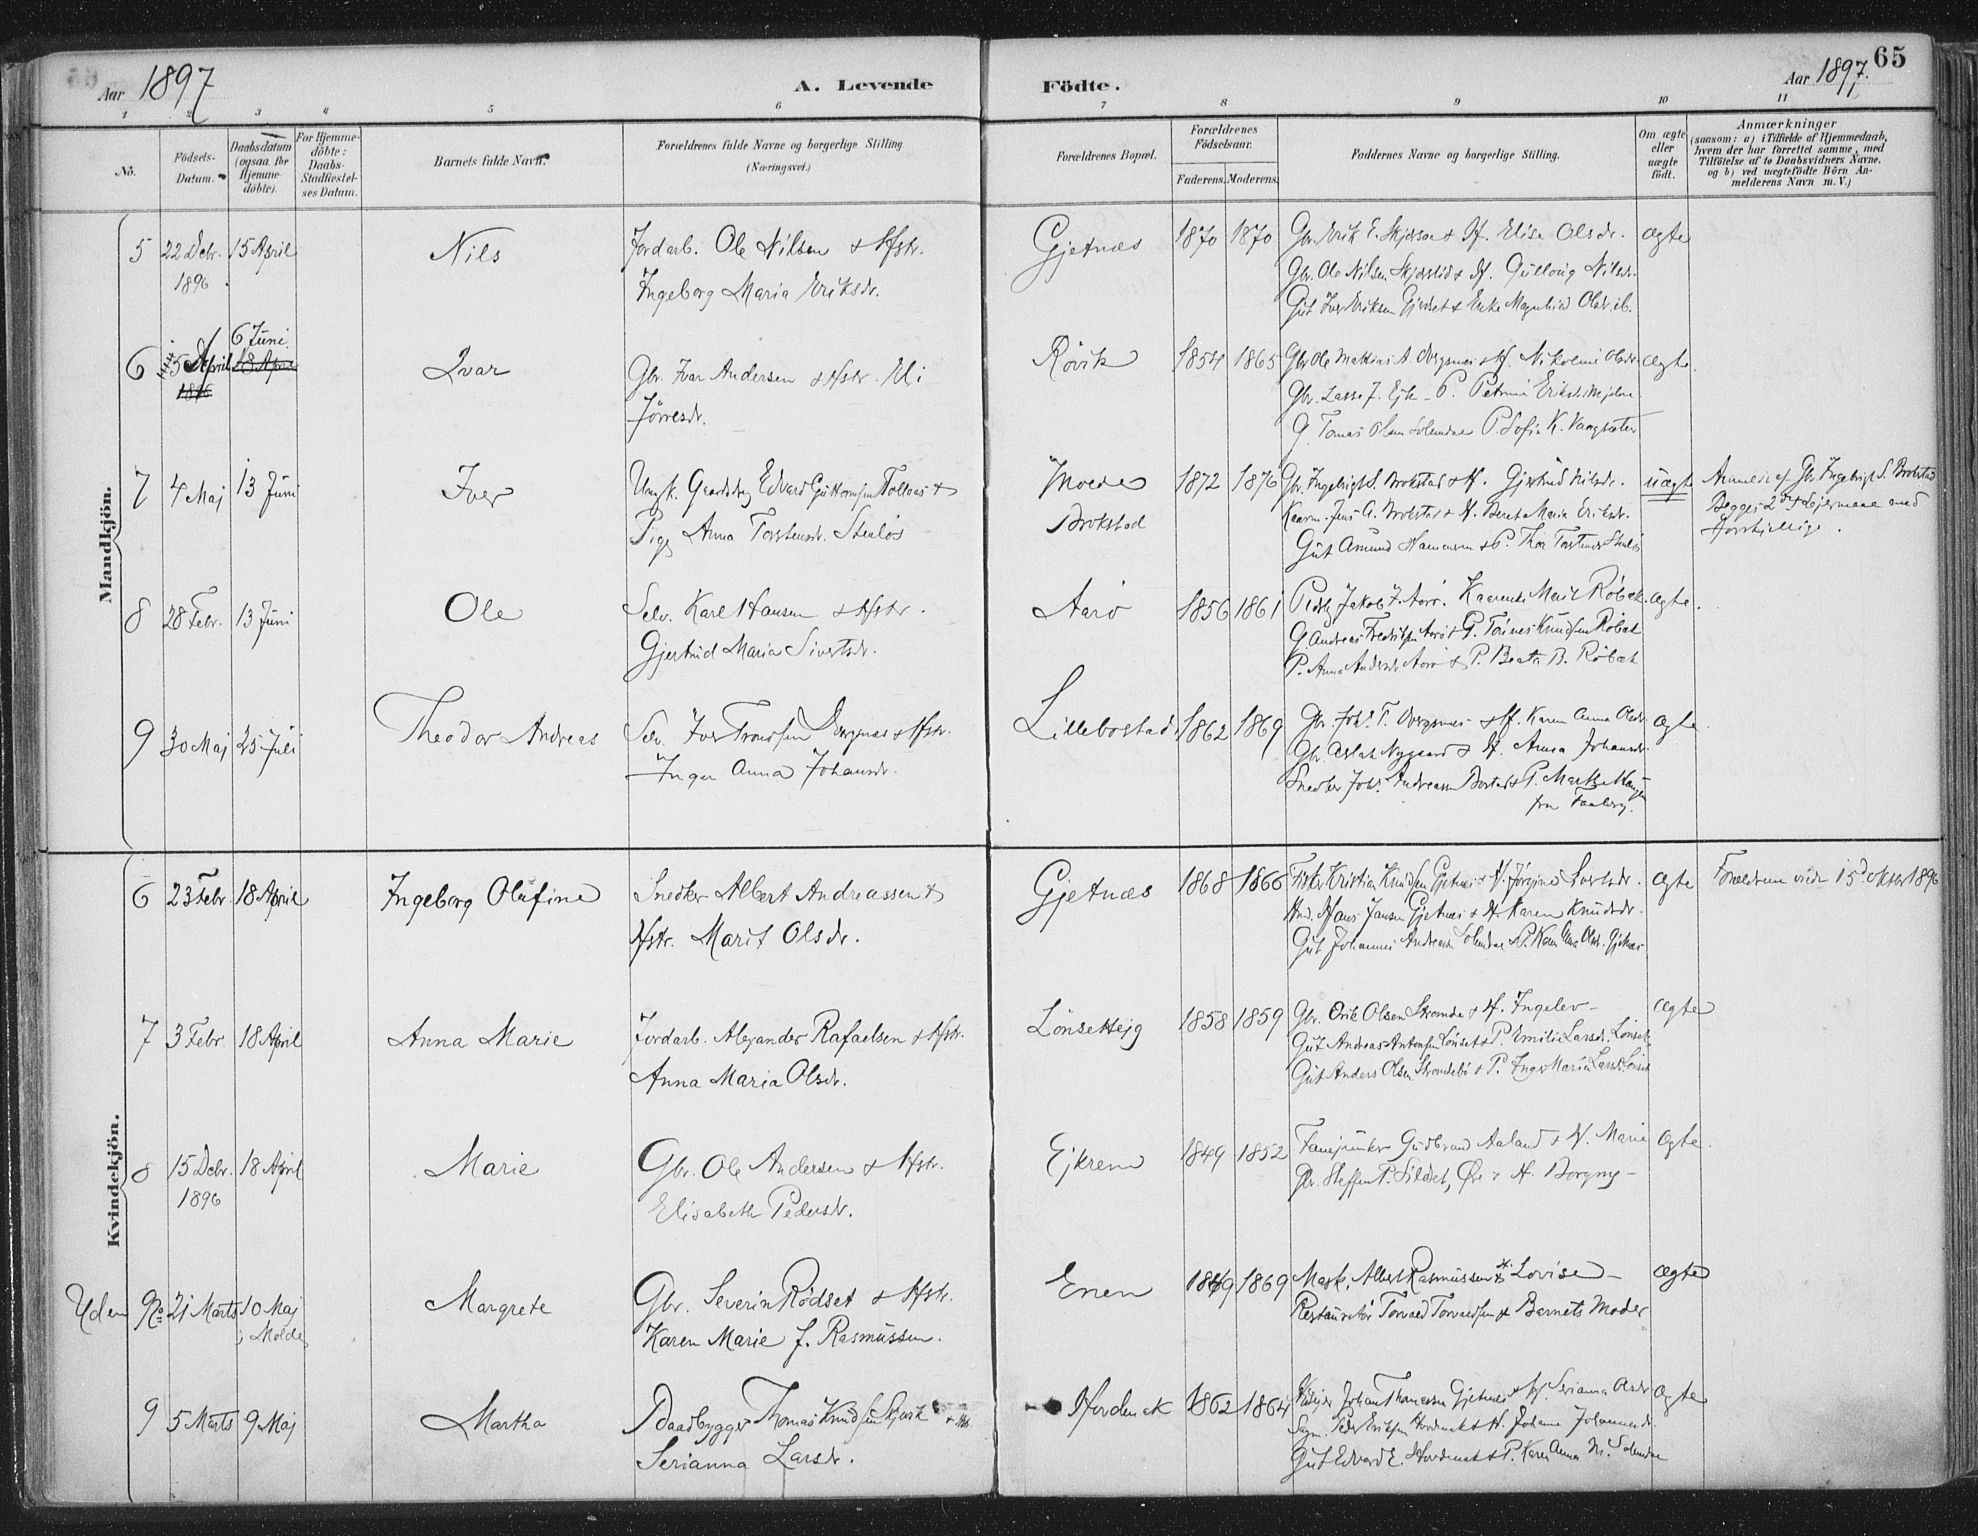 Aar 1897
A. Levende Födte.
Aar 1897.
65
1 2 3 4 5 6 7 8 9 10 11
No.
Födsels-Datum.
Daabsdatum (ogsaa for Hjemme-döbte).
For Hjemme-döbte: Daabs-Stadfæstel-ses Datum.
Barnets fulde Navn.
Forældrenes fulde Navne og borgerlige Stilling (Næringsvei.)
Forældrenes Bopæl.
Forældrenes Födselsaar.
Faderens. Moderens.
Faddernes Navne og borgerlige Stilling.
Om ægte eller uægte födt.
Anmærkninger
(saasom: a) i Tilfælde af Hjemmedaab,
hvem der har forrettet samme, med
Tilföielse af to Daabsvidners Navne,
og b) ved uægtefödte Börn An-
melderens Navn m. V.)
Mandkjön.
5 22 Debr. 1896 15 April Nils
Jordarb. Ole Nilsen & Hstr.
Ingeborg Maria Eriksdr.
Gjetnæs 1870 1870
Gbr. Erik E. & H. Elise Olsdr. ægte
Gbr. Ole Nilsen & H. Gullovig Nilsdr.
Gut Iver Eriksen & Enke
6 5 April 1896 18 April 6 Juni Ivar
Gbr. Ivar Andersen & Hstr.
Jörresdr.
Røvik 1854 1865
Gbr. Ole Mathias A. & H. Nikoline Olsdr. ægte.
Gbr. Lasse J. Ejk - P. Petrine
G. Tomas Olsen Solemdal P. Sofie K.
7 4 Maj 13 Juni Iver
Ungk. Gaardsbrg Edvard Guttormsen &
Pige Anna Torstensdr. Stenlös
Moede
Brokstad
1872 1876
Gbr. Ingebrigt S. Brokstad & H. Gjertrud Nilsdr. uægte
Kaarm. Jens A. Brokstad & H. Beret Maria Eriksdr.
Gut Amund Hammeren & P. Thea
Anmeldt af Gbr. Ingebrigt S. Brokstad
Begges 2det Lejermaal med
forskjellige.
8 28 Febr. 13 Juni Ole
Selv. Karl Hansen & Hstr.
Gjertrud Maria Sivertsdr.
Aarö 1856 1861
Jakob Aarö. Marit Röbek. ægte.
G. Andreas Fredriksen Aarö & G. Tönnes Knudsen Röbek
P. Anna Andersdr. Aarö & P. Beata B. Röbek
9 30 Maj 25 Juli Theodor Andreas
Selv. Iver Trondsen & Hstr.
Inger Anna Johansdr.
Lillebostad 1862 1869
Gbr. Johs. T. & H. Karen Anna Olsdr. ægte
Gbr. Aslak Nygaard & H. Anna Johansdr.
Snedker Johs. Andreassen & P. Marthe Haugen
fra Faaberg.
Kvindekjön.
6 23 Febr. 18 April Ingeborg Olufine
Snedker Albert Andreassen &
Hstr. Marit Olsdr.
Gjetnæs 1868 1866
Fisker Kristian Knudsen Gjetnæs & H. Jörgine ægte
Hmd. Hans Jansen Gjetnæs & H. Karen Knudsdr.
Gut Johannes Andreassen Solemdal & P. Karen Anna Olsdr. Gjetnæs
Forældrene viede 15de Oktbr 1896
7 3 Febr. 18 April Anna Marie
Jordarb. Alexander Rafaelsen & Hstr.
Anna Maria Olsdr.
Lönsethejg 1858 1859
Gbr. Erik Olsen & H. Ingelev - ægte
Gut Andreas Antonsen Lönset & P. Emilie Larsdr. Lönset
Gut Anders Olsen & P. Inger Maria Larsdr. Lönset
8 15 Debr. 1896 18 April Marie
Gbr. Ole Andersen & Hstr.
Elisabeth Pedersdr.
Ejkrem 1849 1852
Fanejunker Gudbrand Aaland & H. Marie ægte.
Gbr. Steffen P. Sildset, Öre & H. Borgny -
Uden No 21 Marts 10 Maj i Molde Margrete
Gbr. Severin Rödset & Hstr.
Karen Marie f. Rasmussen.
Enen 1849 1869
Mask. Albert Rasmussen & H. Lovise - ægte
Restauratör Torvald Torvaldsen & Barnets Moder
9 5 Marts 9 Maj Martha
Baadbygger Thomas Knudsen & Hstr.
Serianna Larsdr.
Hordenak 1862 1864
Johan Thomassen Gjetnæs & H. Serianna ægte
Sagm. Peder Eriksen Hordenak & H. Johanna Johannesdr.
Gut Edvard E. Hordenak & P. Karen Anna M. Solemdal